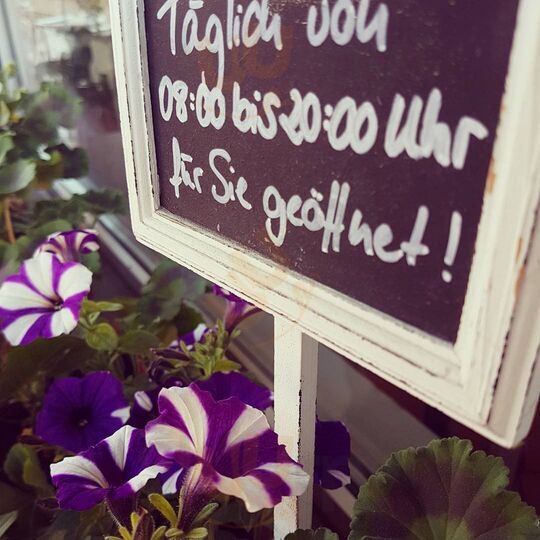 Täglich von
08:00 bis 20:00 Uhr
für Sie geöffnet!